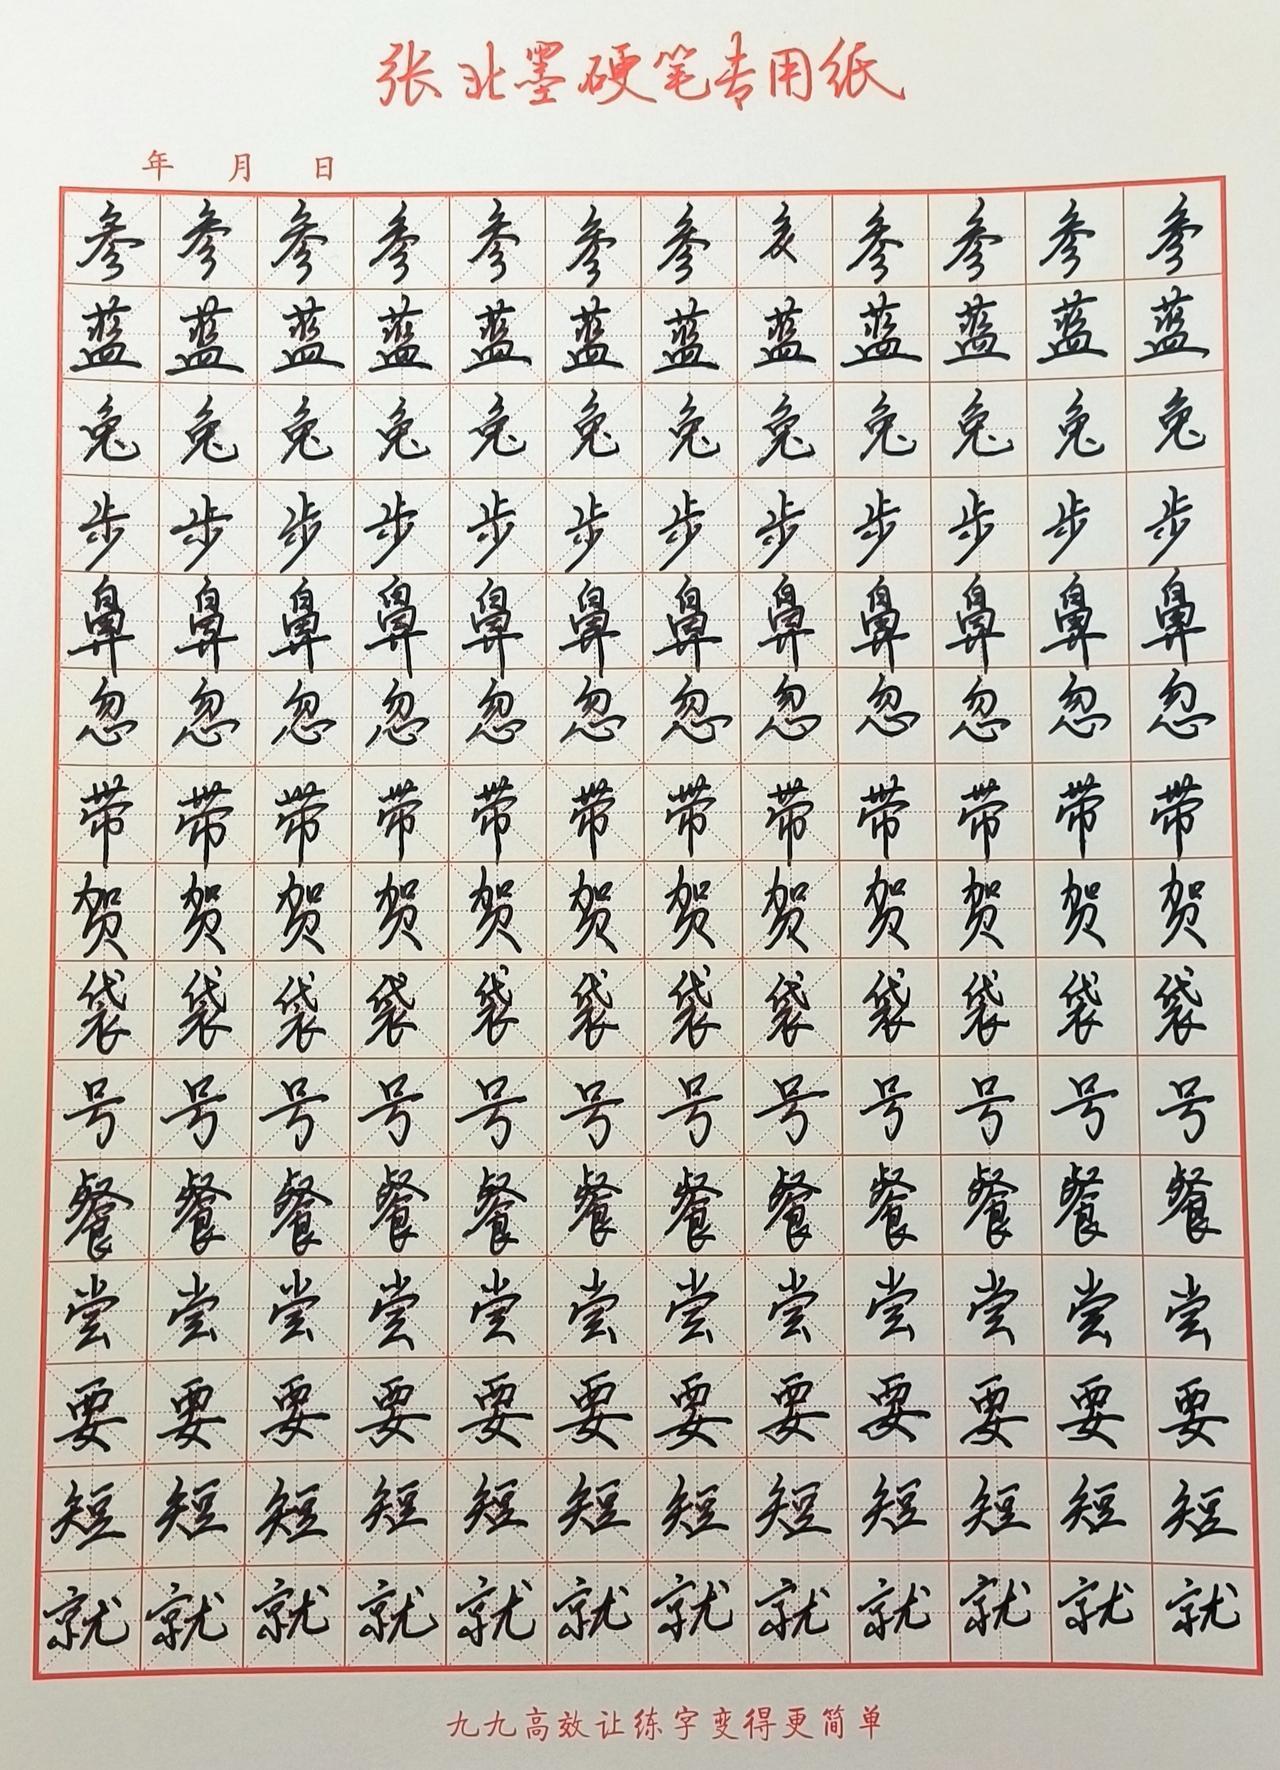 张北墨硬笔专用纸
年 月 日
参参参参参参参参参参参
蓝蓝蓝蓝蓝蓝蓝蓝蓝蓝蓝蓝
兔兔兔兔兔兔兔兔兔兔兔兔
步步步步步步步步步步步步
鼻鼻鼻鼻鼻鼻鼻鼻鼻鼻鼻鼻
忽忽忽忽忽忽忽忽忽忽忽忽
带带带带带带带带带带带带
贺贺贺贺贺贺贺贺贺贺贺贺
袋袋袋袋袋袋袋袋袋袋袋袋
号号号号号号号号号号号号
餐餐餐餐餐餐餐餐餐餐餐餐
尝尝尝尝尝尝尝尝尝尝尝尝
要要要要要要要要要要要要
短短短短短短短短短短短短
就就就就就就就就就就就就
九九高效让练字变得更简单